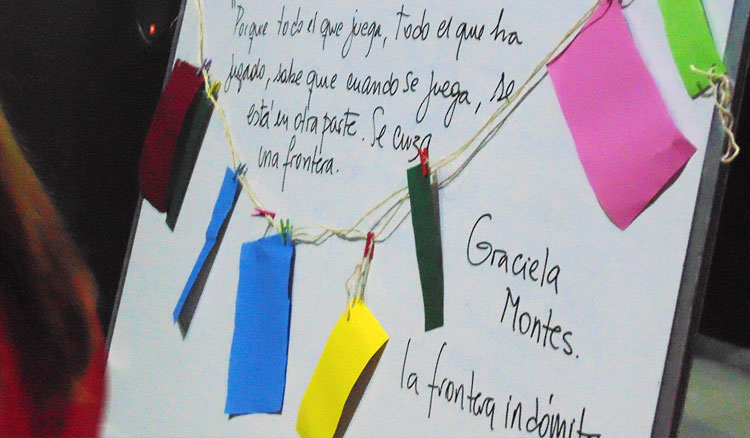 "Porque todo el que juega, todo el que ha
jugado, sabe que cuando se juega, se
está en otra parte. Se cruza
una frontera.
Graciela
Montes.
la frontera indómita